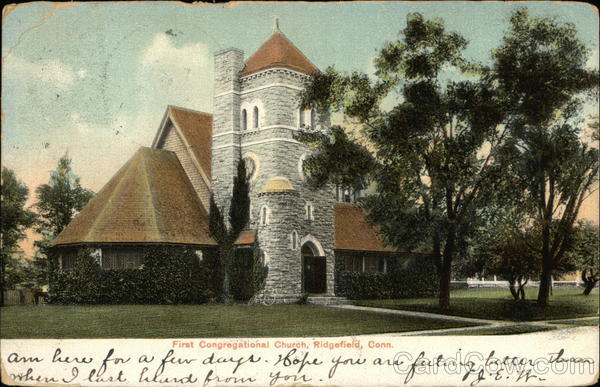 First Congregational Church, Ridgefield, Conn.
am here for a few days. Hope you are feeling better than
when I last heard from you.
CardCow.com